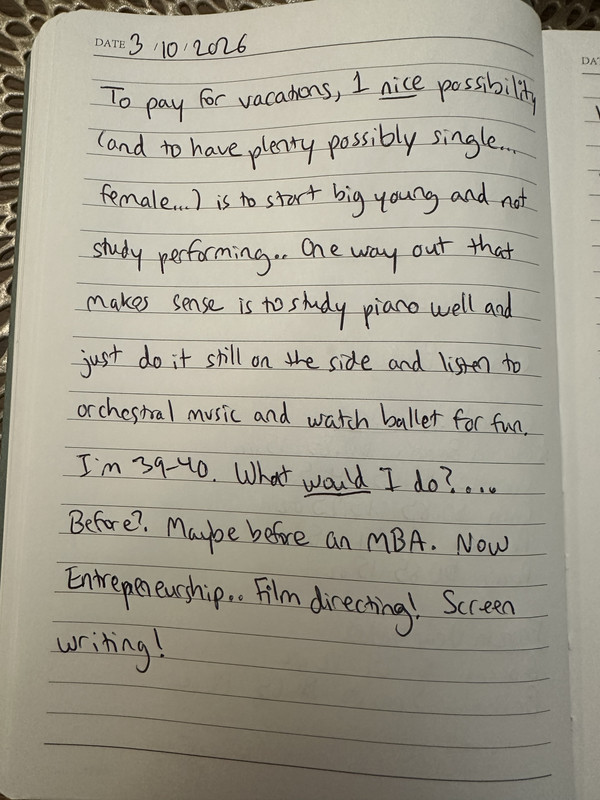 DATE 3/10/2026
To pay for vacations, 1 nice possibility
(and to have plenty possibly single...
female...) is to start big young and not
study performing.. One way out that
makes sense is to study piano well and
just do it still on the side and listen to
orchestral music and watch ballet for fun.
I'm 39-40. What would I do?....
Before?. Maybe before an MBA. Now
Entrepreneurship.. Film directing! Screen
writing!
DA